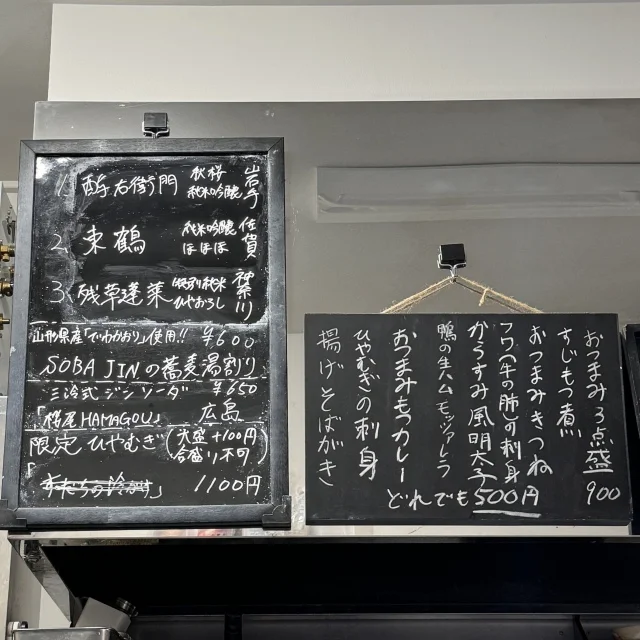 1. 酉与右衛門 秋桜 純米吟醸 岩手
2. 東鶴 純米吟醸 ほほほ 佐賀
3. 残草蓬莱 特別純米 ひやおろし 神奈川
山形県産「でわかおり」使用!! ¥600
SOBA JINの蕎麦湯割り
三冷式ジンソーダ ¥650
「桜尾HAMAGOU」 広島
限定ひやむぎ (大盛+100円 合盛り不可)
「すだちの冷かけ」 1100円
おつまみ3点盛 900
すじもつ煮
おつまみきつね
フワ(牛の肺)の刺身
からすみ風明太子
鴨の生ハムモッツァレラ
おつまみもつカレー
ひやむぎの刺身
揚げそばがき
どれでも500円